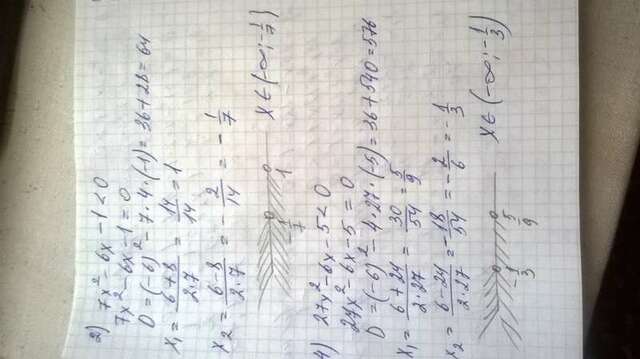 2) 7x² - 6x - 1 < 0
7x² - 6x - 1 = 0
D = (-6)² - 7·4·(-1) = 36 + 28 = 64
x₁ = (6+8)/(2·7) = 14/14 = 1
x₂ = (6-8)/(2·7) = -2/14 = -1/7
-1/7 1
x ∈ (-∞; -1/7)
4) 27x² - 6x - 5 < 0
27x² - 6x - 5 = 0
D = (-6)² - 4·27·(-5) = 36 + 540 = 576
x₁ = (6+24)/(2·27) = 30/54 = 5/9
x₂ = (6-24)/(2·27) = -18/54 = -2/6 = -1/3
-1/3 5/9
x ∈ (-∞; -1/3)